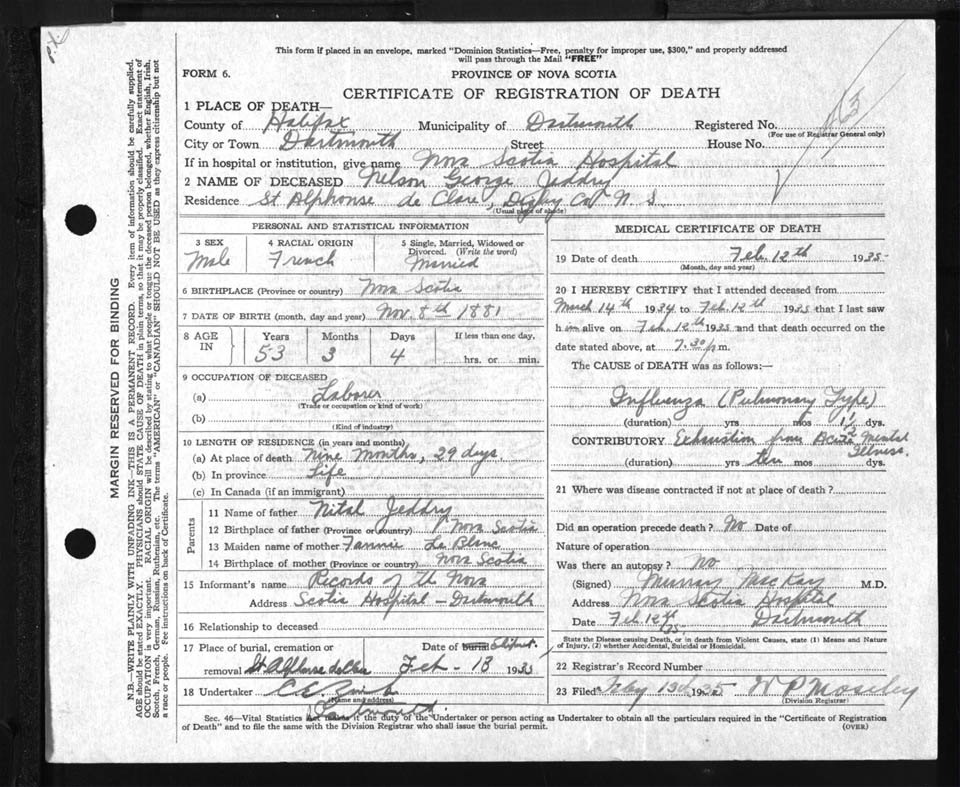 p.t.
This form if placed in an envelope, marked "Dominion Statistics—Free, penalty for improper use, $300," and properly addressed
will pass through the Mail "FREE"
FORM 6.
PROVINCE OF NOVA SCOTIA
CERTIFICATE OF REGISTRATION OF DEATH
1 PLACE OF DEATH—
County of Halifax Municipality of Dartmouth Registered No.
(For use of Registrar General only)
City or Town Dartmouth Street House No.
If in hospital or institution, give name Nova Scotia Hospital
2 NAME OF DECEASED Nelson George Jeddry
Residence St Alphonse de Clare, Digby Co. N. S.
(Usual place of abode)
PERSONAL AND STATISTICAL INFORMATION
3 SEX 4 RACIAL ORIGIN 5 Single, Married, Widowed or
Divorced. (Write the word)
Male French Married
6 BIRTHPLACE (Province or country) Nova Scotia
7 DATE OF BIRTH (month, day and year) Nov. 8th 1881
8 AGE IN Years Months Days If less than one day,
53 3 4 hrs. or min.
9 OCCUPATION OF DECEASED
(a) Laborer
(Trade or occupation or kind of work)
(b)
(Kind of industry)
10 LENGTH OF RESIDENCE (in years and months)
(a) At place of death Nine Months, 29 days
(b) In province Life
(c) In Canada (if an immigrant)
Parents
11 Name of father Jeddry
12 Birthplace of father (Province or country) Nova Scotia
13 Maiden name of mother Fannie Le Blanc
14 Birthplace of mother (Province or country) Nova Scotia
15 Informant's name Records of the Nova
Address Scotia Hospital - Dartmouth
16 Relationship to deceased
17 Place of burial, cremation or Date of burial Shipment
removal St. Alphonse de Clare Feb - 13 1935
18 Undertaker
(Name and address)
Dartmouth
MEDICAL CERTIFICATE OF DEATH
19 Date of death Feb. 12th 1935
(Month, day and year)
20 I HEREBY CERTIFY that I attended deceased from
March 14th 1934 to Feb. 12th 1935 that I last saw
him alive on Feb. 12th 1935 and that death occurred on the
date stated above, at 7.30 p.m.
The CAUSE of DEATH was as follows:—
Influenza (Pulmonary Type)
(duration) yrs mos 1½ dys.
CONTRIBUTORY Exhaustion from Acute Mental
Illness.
(duration) yrs ten mos dys.
21 Where was disease contracted if not at place of death?
Did an operation precede death? No Date of
Nature of operation
Was there an autopsy? No
(Signed) Murray MacKay M.D.
Address Nova Scotia Hospital
Date Feb. 12th 35 Dartmouth
State the Disease causing Death, or in death from Violent Causes, state (1) Means and Nature
of Injury, (2) whether Accidental, Suicidal or Homicidal.
22 Registrar's Record Number
23 Filed Feby 13th 1935 W P Moseley
(Division Registrar)
Sec. 46—Vital Statistics Act makes it the duty of the Undertaker or person acting as Undertaker to obtain all the particulars required in the "Certificate of Registration
of Death" and to file the same with the Division Registrar who shall issue the burial permit. (OVER)
MARGIN RESERVED FOR BINDING
N.B.—WRITE PLAINLY WITH UNFADING INK—THIS IS A PERMANENT RECORD. Every item of information should be carefully supplied.
AGE should be stated EXACTLY. PHYSICIANS should STATE CAUSE OF DEATH in plain terms, so that it may be properly classified. Exact statement of
OCCUPATION is very important. RACIAL ORIGIN will be described by stating to what people or tongue the deceased person belonged, whether English, Irish,
Scotch, French, German, Russian, Ruthenian, etc. The terms "AMERICAN" or "CANADIAN" SHOULD NOT BE USED as they express citizenship but not
a race or people. Fee instructions on back of Certificate.